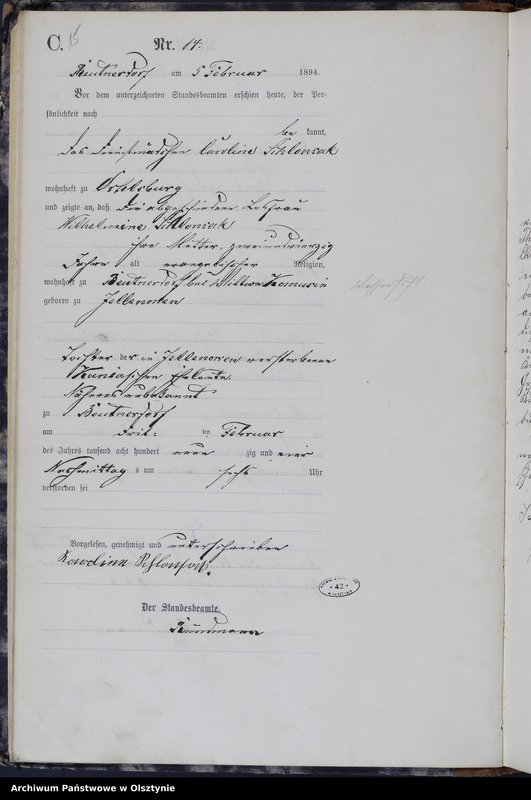 C. 15 Nr. 14.
Beutnerdorf am 5 Februar 1894.
Vor dem unterzeichneten Standesbeamten erschien heute, der Per-
sönlichkeit nach
be kannt,
das Dienstmädchen Caroline Schlonsak
wohnhaft zu Ortelsburg
und zeigte an, daß die abgeschiedene Losfrau
Wilhelmine Schlonsak
ihre Mutter, zweiundvierzig
Jahre alt evangelischer Religion,
wohnhaft zu Beutnerdorf bei
geboren zu Jellenowen
Tochter der in Jellenowen verstorbenen
Eheleute.
Näheres unbekannt
zu Beutnerdorf
am ten Februar
des Jahres tausend acht hundert neun zig und vier
Nachmittag s um sechs Uhr
verstorben sei
Vorgelesen, genehmigt und unterschrieben
Karoline Schlonsak.
42
Der Standesbeamte.
Archiwum Państwowe w Olsztynie